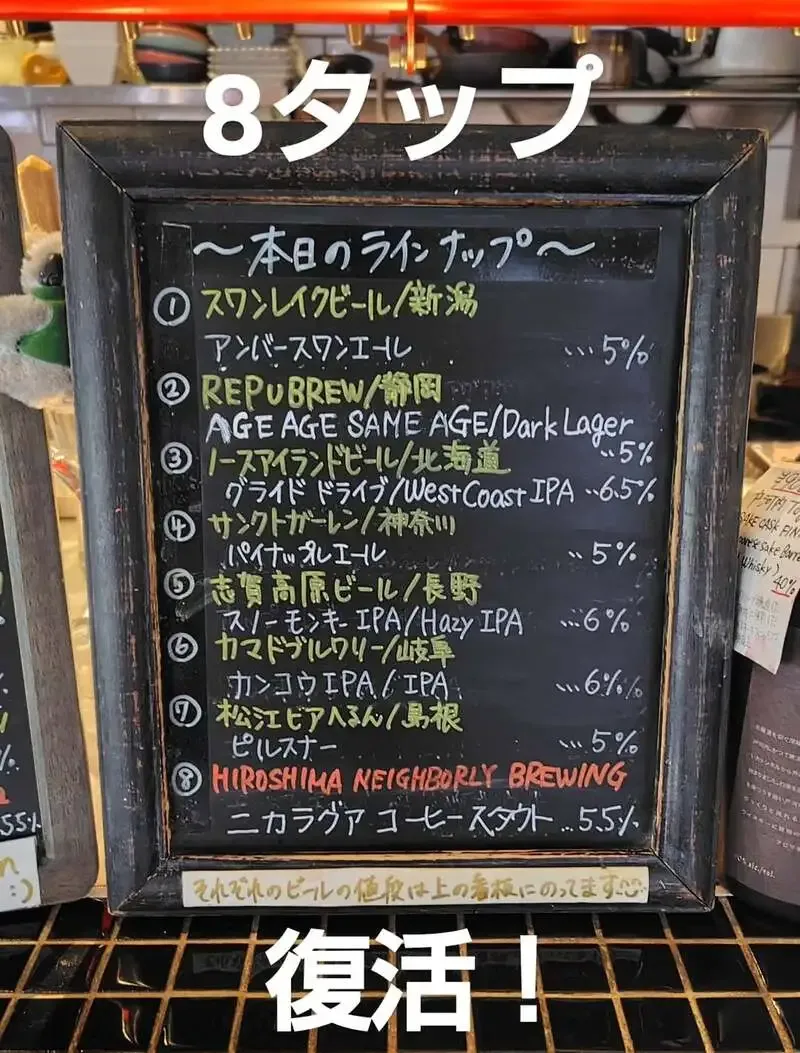 8タップ
～本日のラインナップ～
① スワンレイクビール/新潟
アンバースワンエール ...5%
② REPUBREW/静岡
AGE AGE SAME AGE/Dark Lager
..5%
③ ノースアイランドビール/北海道
グライド ドライブ/West Coast IPA ..6.5%
④ サンクトガーレン/神奈川
パイナップルエール ..5%
⑤ 志賀高原ビール/長野
スノーモンキーIPA/Hazy IPA ...6%
⑥ カマドブルワリー/岐阜
カンコウIPA/IPA ...6%
⑦ 松江ビアへるん/島根
ピルスナー ...5%
⑧ HIROSHIMA NEIGHBORLY BREWING
ニカラグァ コーヒースタウト ..5.5%
それぞれのビールの値段は上の看板にのってます
復活！
40%